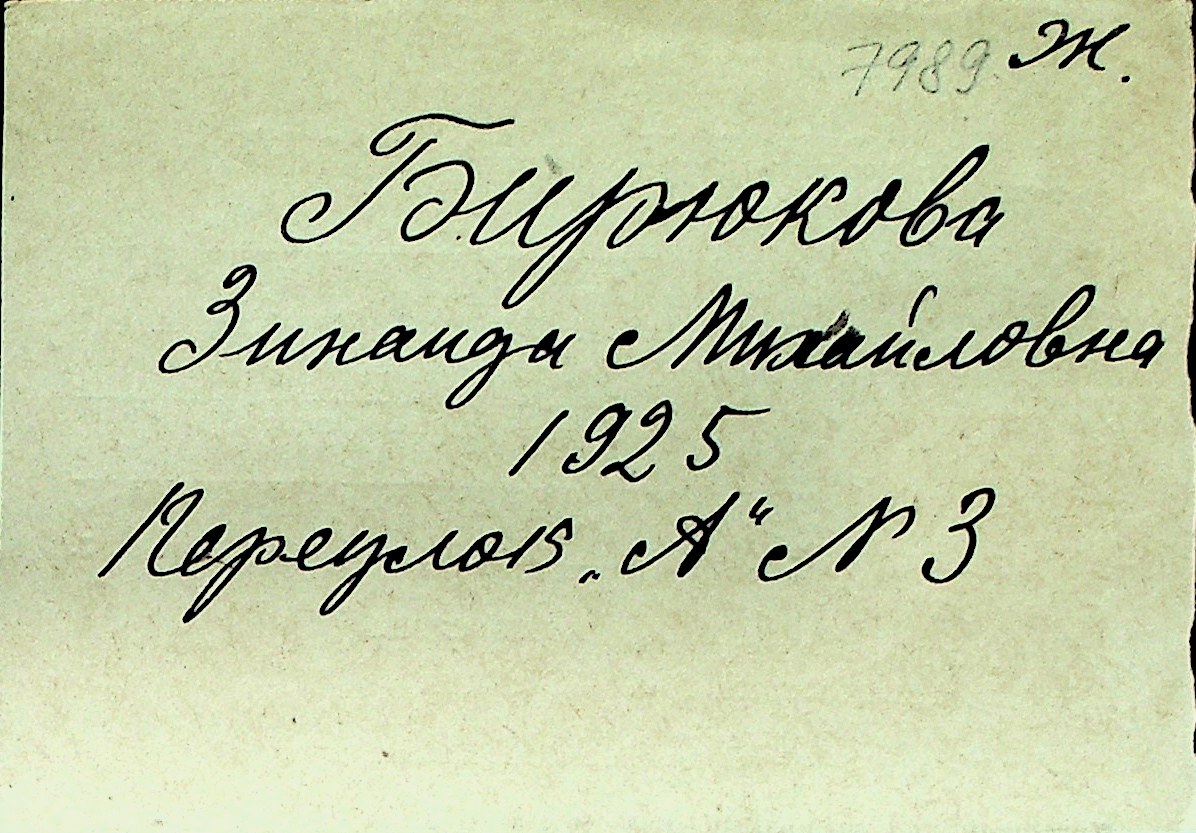 7989 Ж.
Бирюкова
Зинаида Михайловна
1925
Переулок „А“ № 3